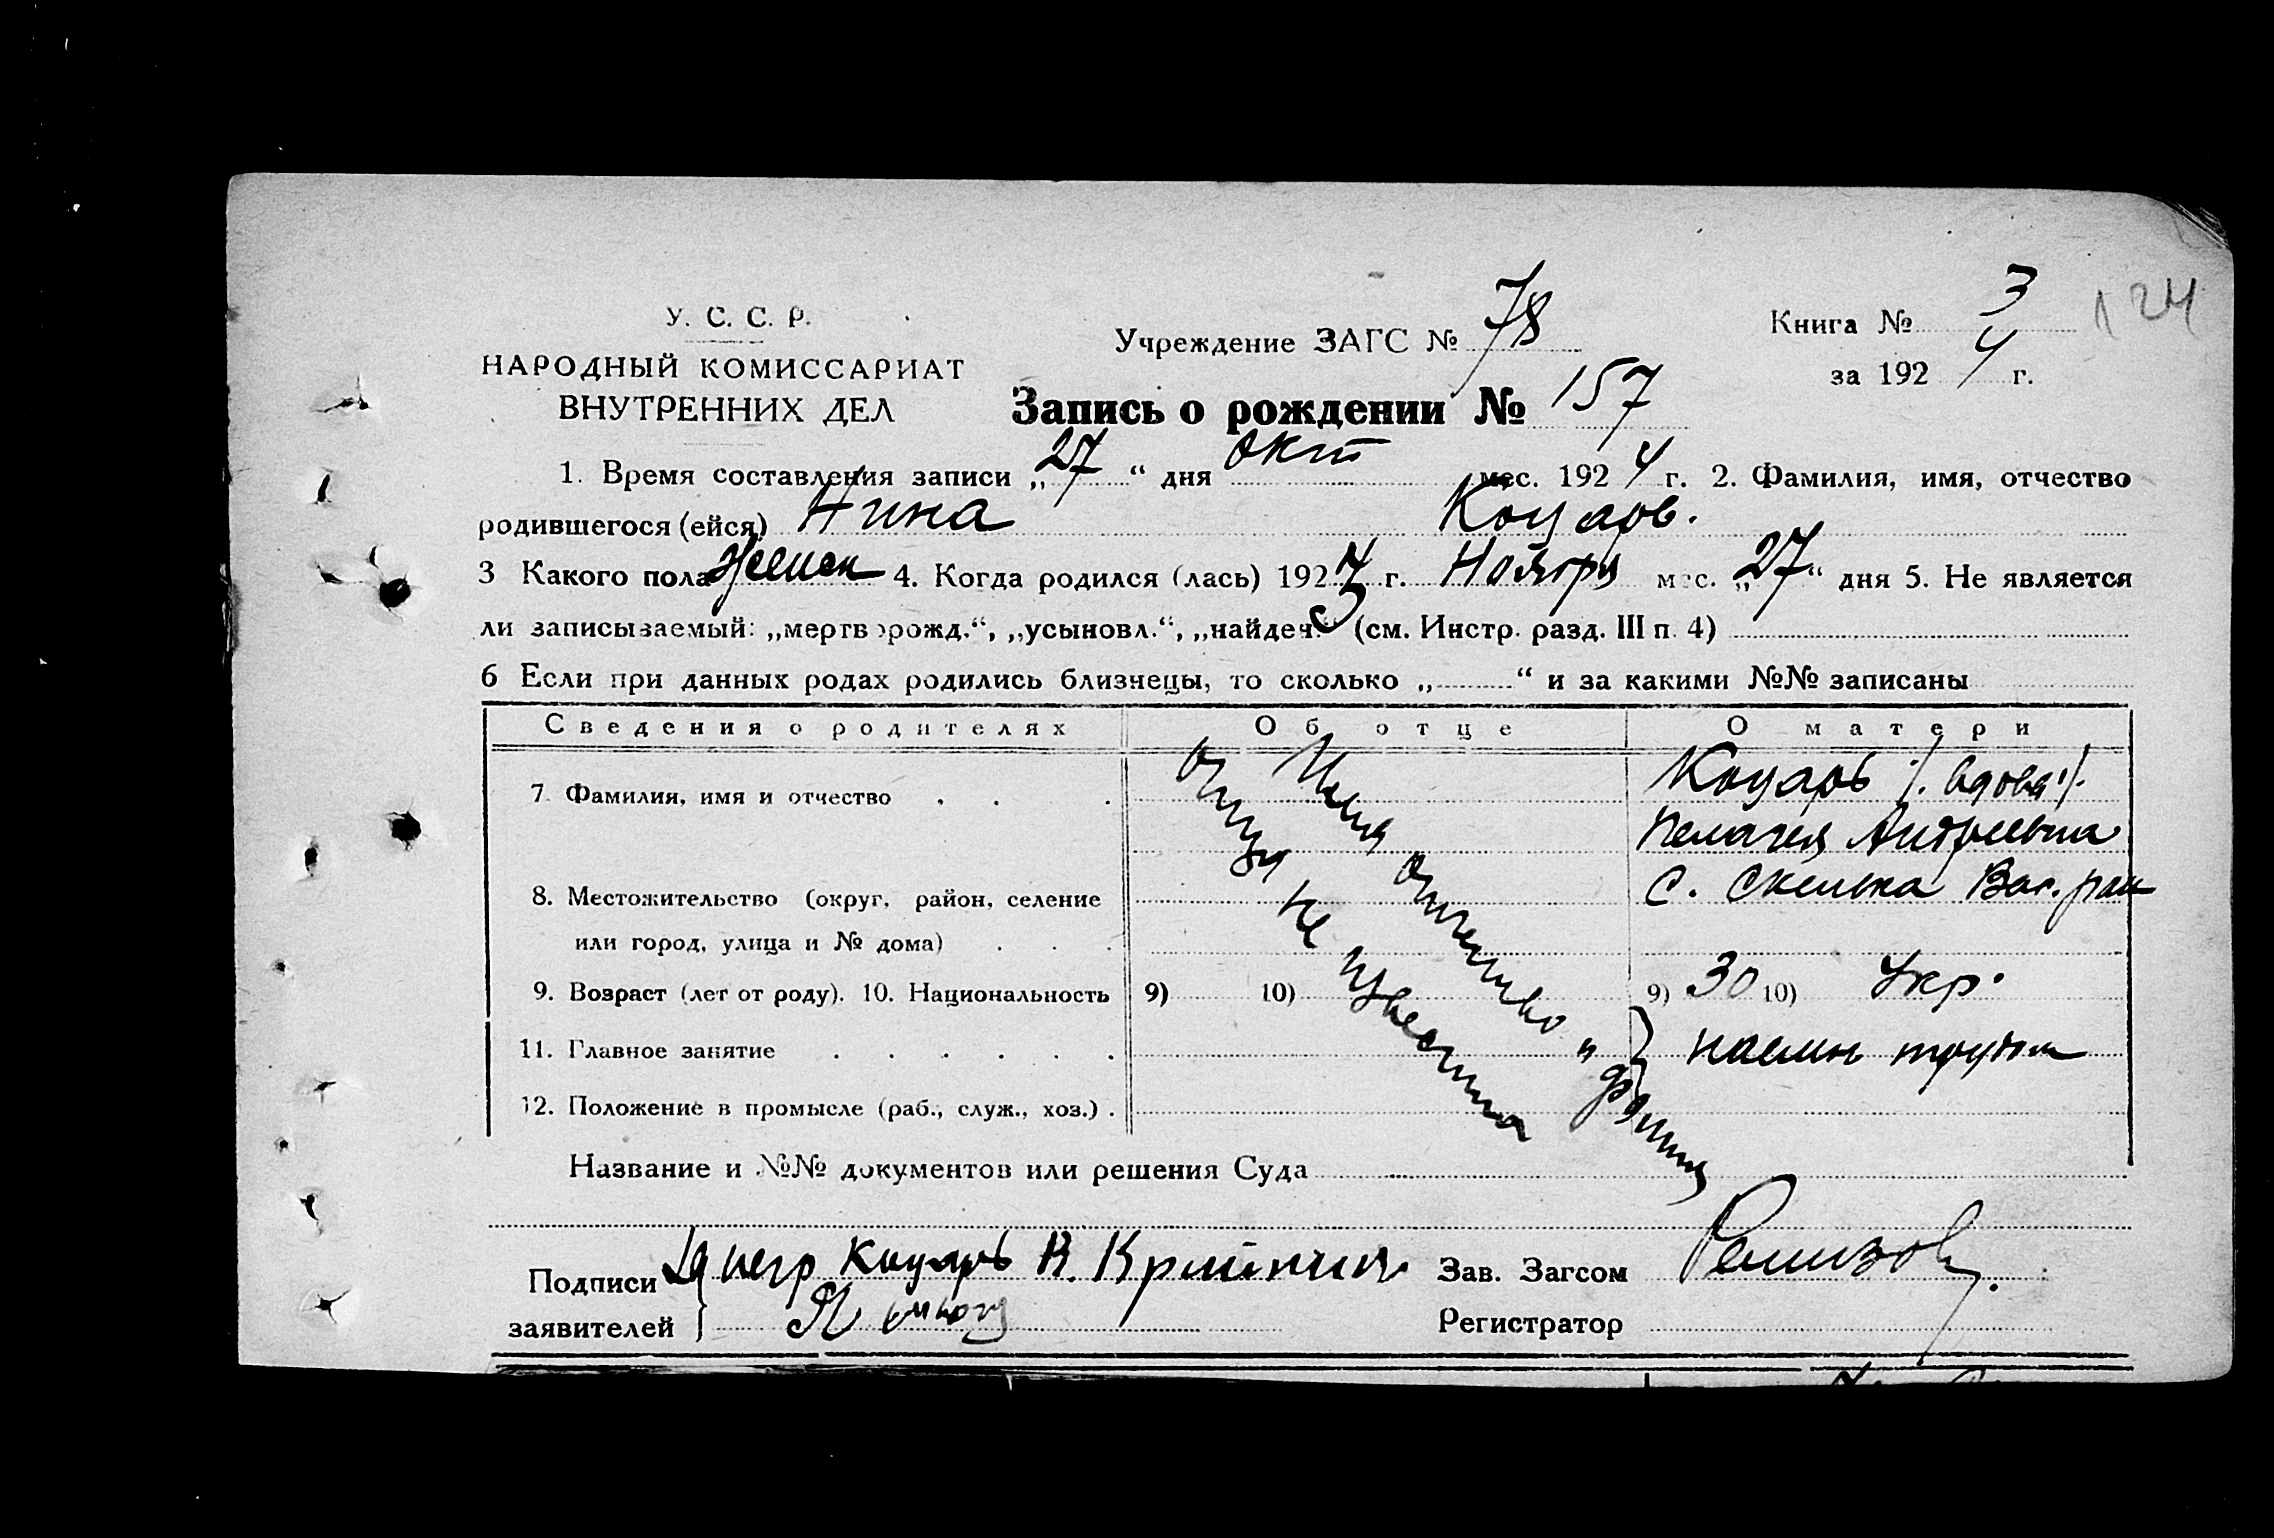 У. С. С. Р.
НАРОДНЫЙ КОМИССАРИАТ
ВНУТРЕННИХ ДЕЛ
Учреждение ЗАГС № 78
Книга № 3
124
за 1924 г.
Запись о рождении № 157
1. Время составления записи „27“ дня окт мес. 1924 г. 2. Фамилия, имя, отчество
родившегося (ейся) Нина Коцарь.
3 Какого пола женск 4. Когда родился (лась) 1923 г. Ноября мес. „27“ дня 5. Не является
ли записываемый: „мертворожд.“, „усыновл.“, „найден.“ (см. Инстр. разд. III п. 4)
6 Если при данных родах родились близнецы, то сколько „ “ и за какими №№ записаны
Сведения о родителях Об отце О матери
7. Фамилия, имя и отчество Коцарь /. вдова ./.
Пелагея Андреевна
8. Местожительство (округ, район, селение с. Скелька Вас. рай
или город, улица и № дома)
9. Возраст (лет от роду). 10. Национальность 9) 10) 9) 30 10) Укр.
11. Главное занятие наемн труды
12. Положение в промысле (раб., служ., хоз.)
Имя отчество и фамилия
отца не известна
Название и №№ документов или решения Суда
Подписи Коцарь Зав. Загсом Ремизов
заявителей Регистратор